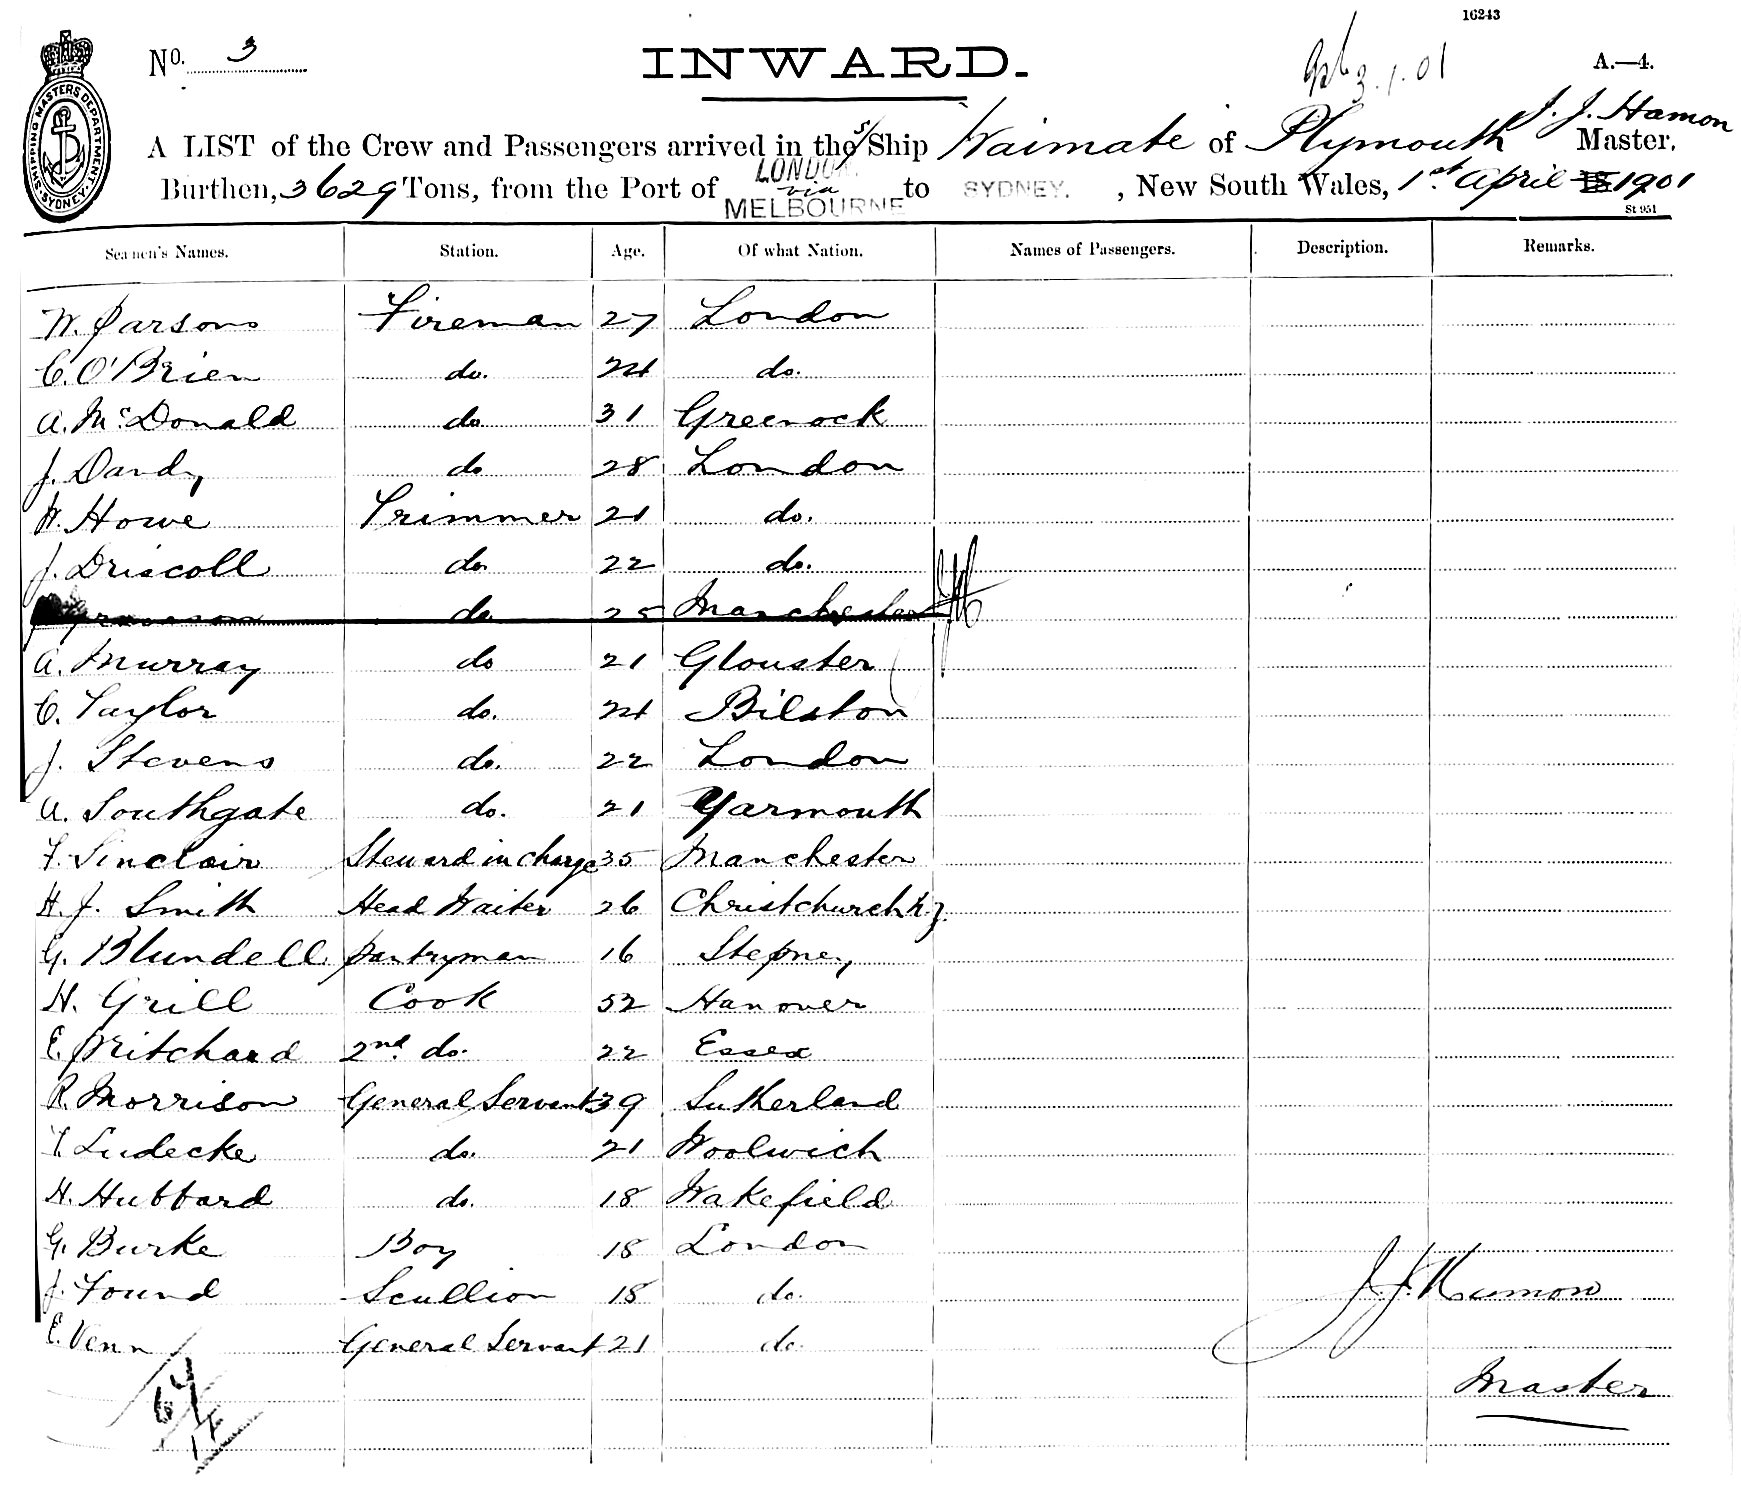 16243
No. 3
INWARD.
3.1.01
A.—4.
SHIPPING MASTERS DEPARTMENT. SYDNEY.
J. J. Hamon
A LIST of the Crew and Passengers arrived in the S/Ship Waimate of Plymouth Master,
Burthen, 3629 Tons, from the Port of LONDON via MELBOURNE to SYDNEY. , New South Wales, 1st April 1901
St 951
Seamen's Names. Station. Age. Of what Nation. Names of Passengers. Description. Remarks.
W. Parsons Fireman 27 London
C. O'Brien do. 24 do.
A. McDonald do 31 Greenock
J. Dandy do 28 London
W. Howe Trimmer 21 do.
J. Driscoll do. 22 do.
do. 25 Manchester
A. Murray do 21 Glouster
C. Taylor do. 24 Bilston
J. Stevens do. 22 London
A. Southgate do. 21 Yarmouth
F. Sinclair Steward in charge 35 Manchester
H. J. Smith Head Waiter 26 Christchurch N.Z.
G. Blundell Pantryman 16 Stepney
H. Grill Cook 52 Hanover
E. Pritchard 2nd do. 22 Essex
R. Morrison General Servant 39 Sutherland
F. Ludecke do. 21 Woolwich
H. Hubbard do. 18 Wakefield
G. Burke Boy 18 London
J. Found Scullion 18 do.
J. J. Hamon
E. Venn General Servant 21 do.
Master
64